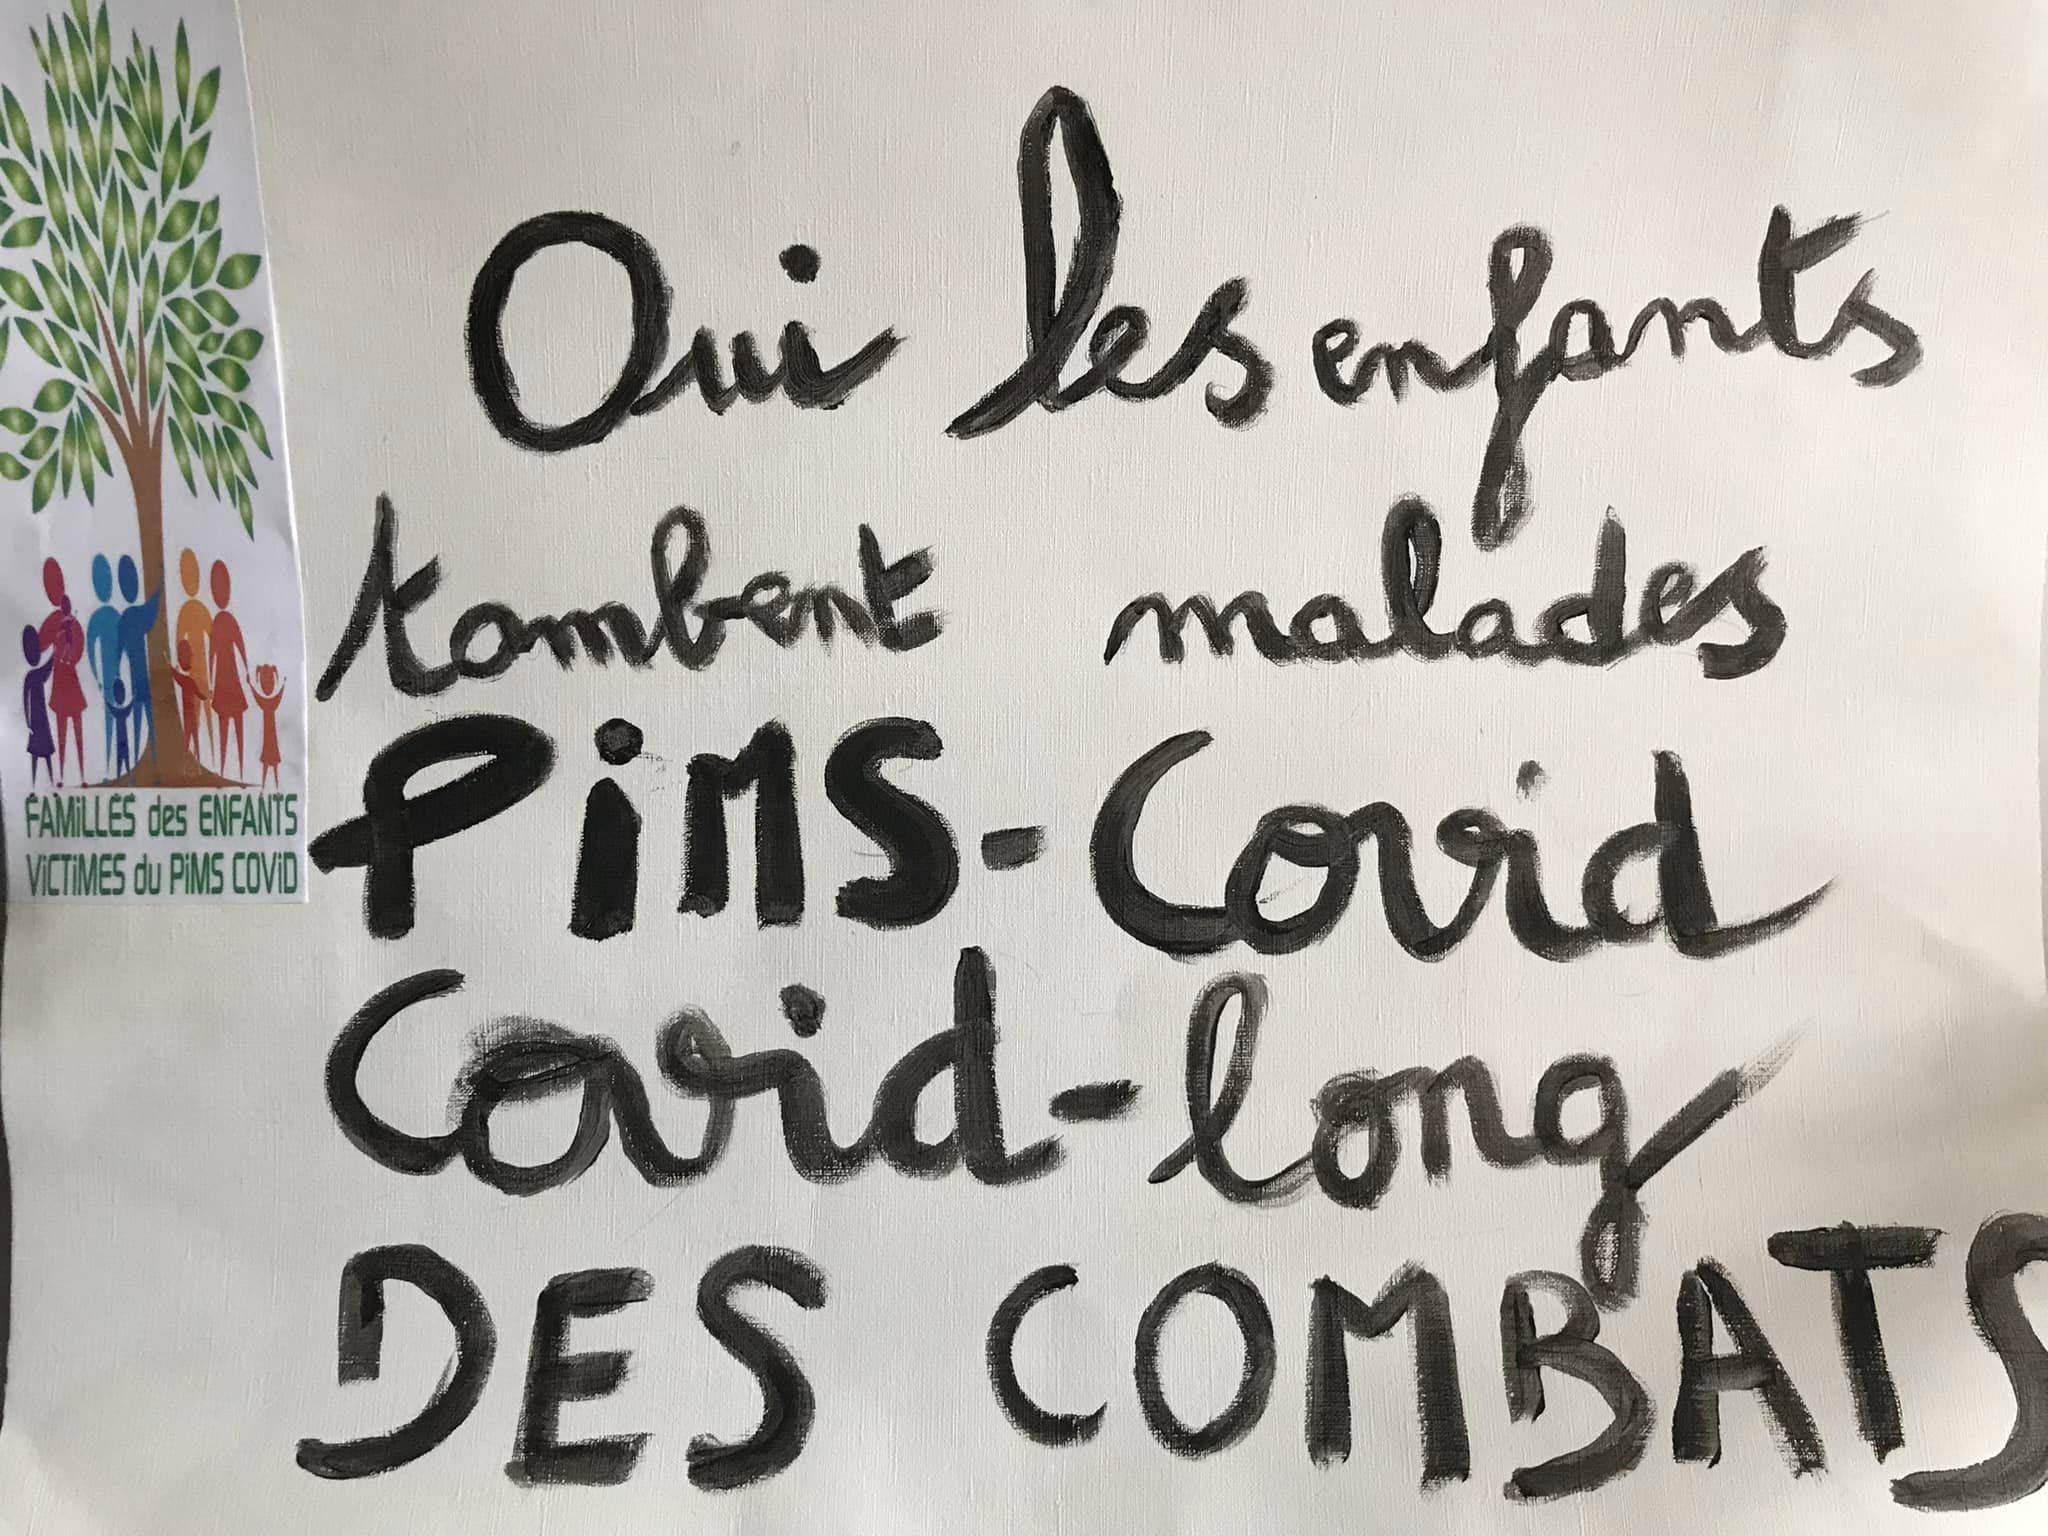 Oui les enfants
tombent malades
PiMS-Covid
Covid-long
DES COMBATS
FAMiLLES des ENFANTS
ViCTiMES du PiMS COViD